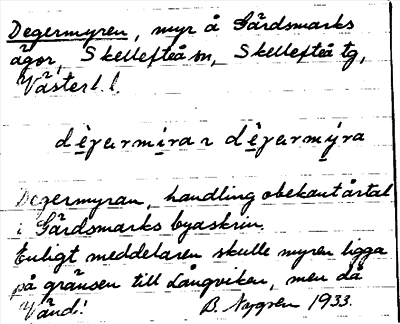 Degermyren, myr å Gärdsmarks
ägor, Skellefteå sn, Skellefteå tg,
Västerb. l.
dè̱γεrmi̱ra ɿ dè̱γεrmý̱ra
Degermyran, handling obekant årtal
i Gärdsmarks byaskrin.
Enligt meddelaren skulle myren ligga
på gränsen till Långviken, men då
Vänd! B. Nygren 1933.